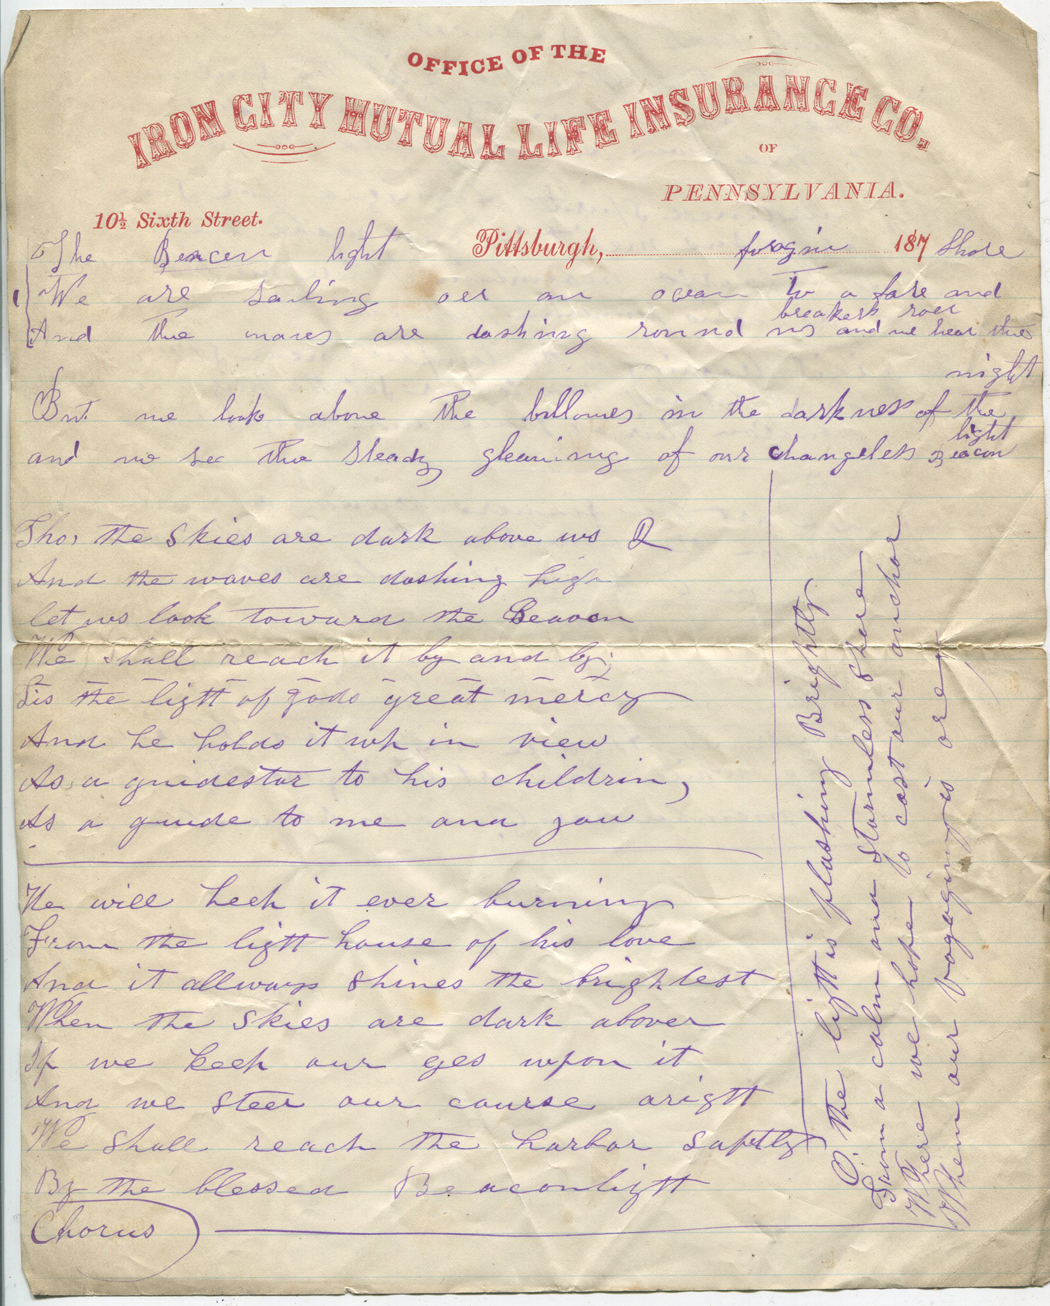 OFFICE OF THE
IRON CITY MUTUAL LIFE INSURANCE CO.
OF
PENNSYLVANIA.
10½ Sixth Street.
Pittsburgh, 187
The Beacen light
foragin Shore
We are sailing oer an ocean to a fare and
breakers roer
And the waves are dashing round us and we hear the
night
But we look above the billowes in the darkness of the
light
and we see the steady gleaming of our changeless Beacon
Tho, the skies are dark above us
And the waves are dashing high
let us look toward the Beacon
We shall reach it by and by,
Tis the ligtt of gods great mercy
And he holds it up in view
As, a guidestar to his childrin,
As a guide to me and you
He will keep it ever burning
From the ligtt house of his love
And it allways shines the brightest
When the skies are dark above
If we keep our eyes upon it
And we steer our course arigtt
We shall reach the harbor saftly
By the blessed Beaconligtt
Chorus
O, the ligtt is flashing Brightly
From a calm and stormless shore
Where we hope to cast our anchor
When our vogaging is ore